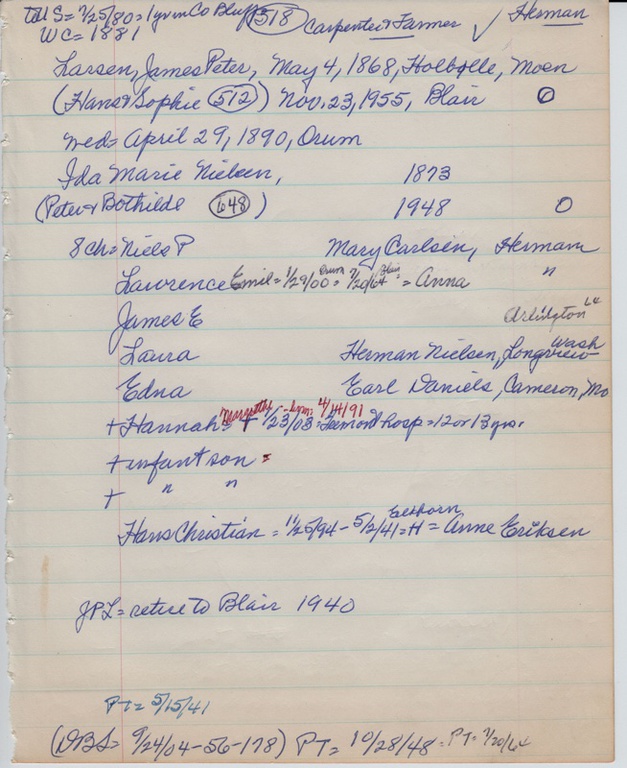 to US = 7/25/80 = 1 yr in Co Bluffs (518) Carpenter & Farmer ✓ Herman
WC = 1881
Larsen, James Peter, May 4, 1868, Holbølle, Moen
(Hans & Sophie (512)) Nov. 23, 1955, Blair O
wed = April 29, 1890, Orum
Ida Marie Nielsen, 1873
(Peter & Bothilde (648)) 1948 O
8 ch = Niels P Mary Carlsen, Herman
Lawrence Emil = 1/29/00 Orum = 7/20/64 Blair = Anna "
James E Arlington
Laura Herman Nielsen, Longview Wash
Edna Earl Daniels, Cameron, Mo
+ Hannah = + /23/03 = hosp = 12 or 13 yrs. 4/14/91
+ infant son =
+ " "
Hans Christian = 11/25/94 - 5/2/41 = Elkhorn = H = Anne Eriksen
JPL = retire to Blair 1940
PT = 5/15/41
(DBS = 9/24/04-56-178) PT = 10/28/48 = PT = 7/20/64